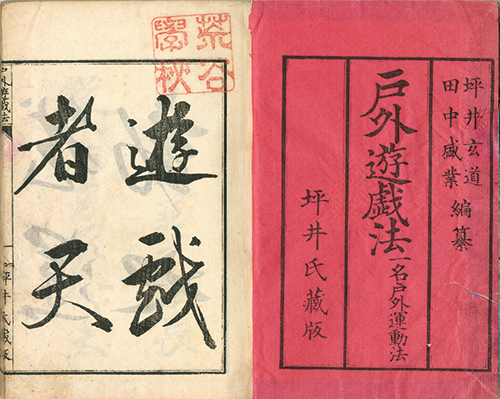 坪井玄道
田中盛業 編纂
戸外遊戯法
一名戸外運動法
坪井氏藏版
遊戯
者天
戸外遊戯法
一
坪井氏藏版